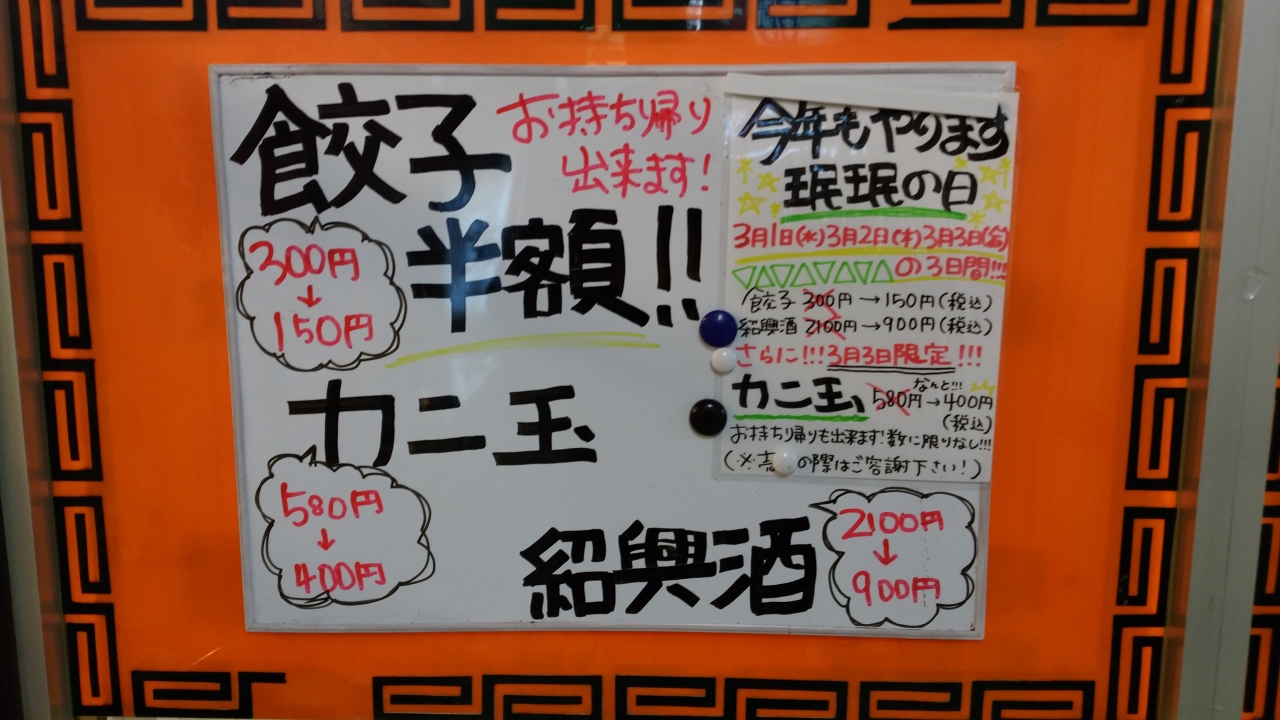 餃子
お持ち帰り
出来ます!
半額!!
300円
↓
150円
カニ玉
580円
↓
400円
紹興酒
2100円
↓
900円
今年もやります
珉珉の日
3月1日(水)3月2日(木)3月3日(金)
の3日間!!!
餃子 300円→150円(税込)
紹興酒 2100円→900円(税込)
さらに!!!3月3日限定!!!
なんと!!!
カニ玉、580円→400円
(税込)
お持ち帰りも出来ます!数に限りなし!!!
(※売 の際はご容謝下さい!)